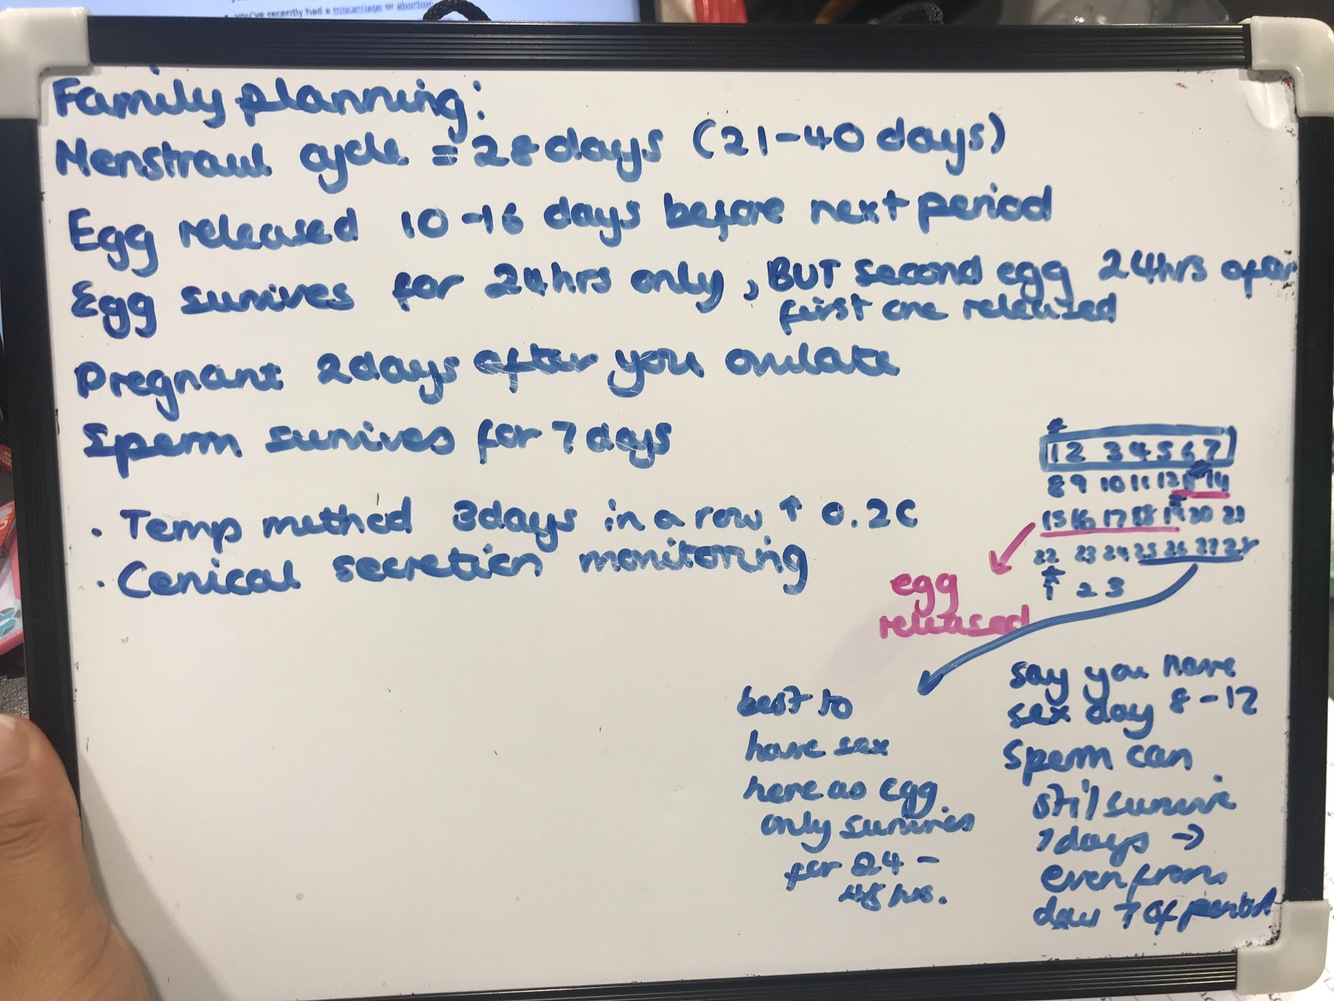 you've recently had a miscarriage or abortion
Family planning:
Menstraul cycle = 28 days (21-40 days)
Egg released 10-16 days before next period
Egg survives for 24hrs only, BUT second egg 24hrs after
first one released
Pregnant 2days after you ovulate
Sperm survives for 7 days
· Temp method 3days in a row ↑ 0.2C
· Cervical secretion monitoring
1 2 3 4 5 6 7
8 9 10 11 12 13 14
15 16 17 18 19 20 21
22 23 24 25 26 27 28
1 2 3
egg
released
best to
have sex
here as egg
only survives
for 24 -
48 hrs.
say you have
sex day 8-12
Sperm can
still survive
7days →
even from
day 7 of period